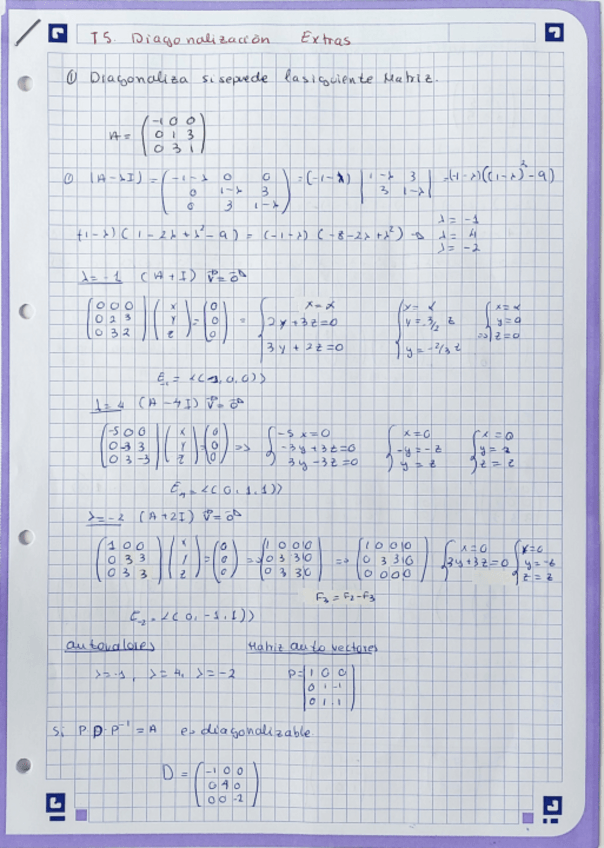 T5. Diagonalización Extras
① Diagonaliza si se puede la siguiente Matriz.
A = ( -1 0 0 / 0 1 3 / 0 3 1 )
① |A-λI| = ( -1-λ 0 0 / 0 1-λ 3 / 0 3 1-λ ) = (-1-λ) | 1-λ 3 / 3 1-λ | = (-1-λ)((1-λ)²-9)
(-1-λ)(1-2λ+λ²-9) = (-1-λ)(-8-2λ+λ²) ⇒ λ=-1 λ=4 λ=-2
λ=-1 (A+I) v⃗=0⃗
( 0 0 0 / 0 2 3 / 0 3 2 ) ( x / y / z ) = ( 0 / 0 / 0 ) = { x=α / 2y+3z=0 / 3y+2z=0 { x=α / y=-3/2 z / y=-2/3 z ⇒ { x=α / y=0 / z=0
E₋₁ = <(1,0,0)>
λ=4 (A-4I) v⃗=0⃗
( -5 0 0 / 0 -3 3 / 0 3 -3 ) ( x / y / z ) = ( 0 / 0 / 0 ) ⇒ { -5x=0 / -3y+3z=0 / 3y-3z=0 { x=0 / -y=-z / y=z { x=0 / y=z / z=z
E₄ = <(0,1,1)>
λ=-2 (A+2I) v⃗=0⃗
( 1 0 0 / 0 3 3 / 0 3 3 ) ( x / y / z ) = ( 0 / 0 / 0 ) ⇒ ( 1 0 0|0 / 0 3 3|0 / 0 3 3|0 ) ⇒ ( 1 0 0|0 / 0 3 3|0 / 0 0 0 0 ) { x=0 / 3y+3z=0 { x=0 / y=-z / z=z
F₃=F₂-F₃
E₋₂ = <(0,-1,1)>
autovalores Matriz autovectores
λ=-1, λ=4, λ=-2 P= | 1 0 0 / 0 1 -1 / 0 1 1 |
Si P D·P⁻¹ = A es diagonalizable
D = ( -1 0 0 / 0 4 0 / 0 0 -2 )